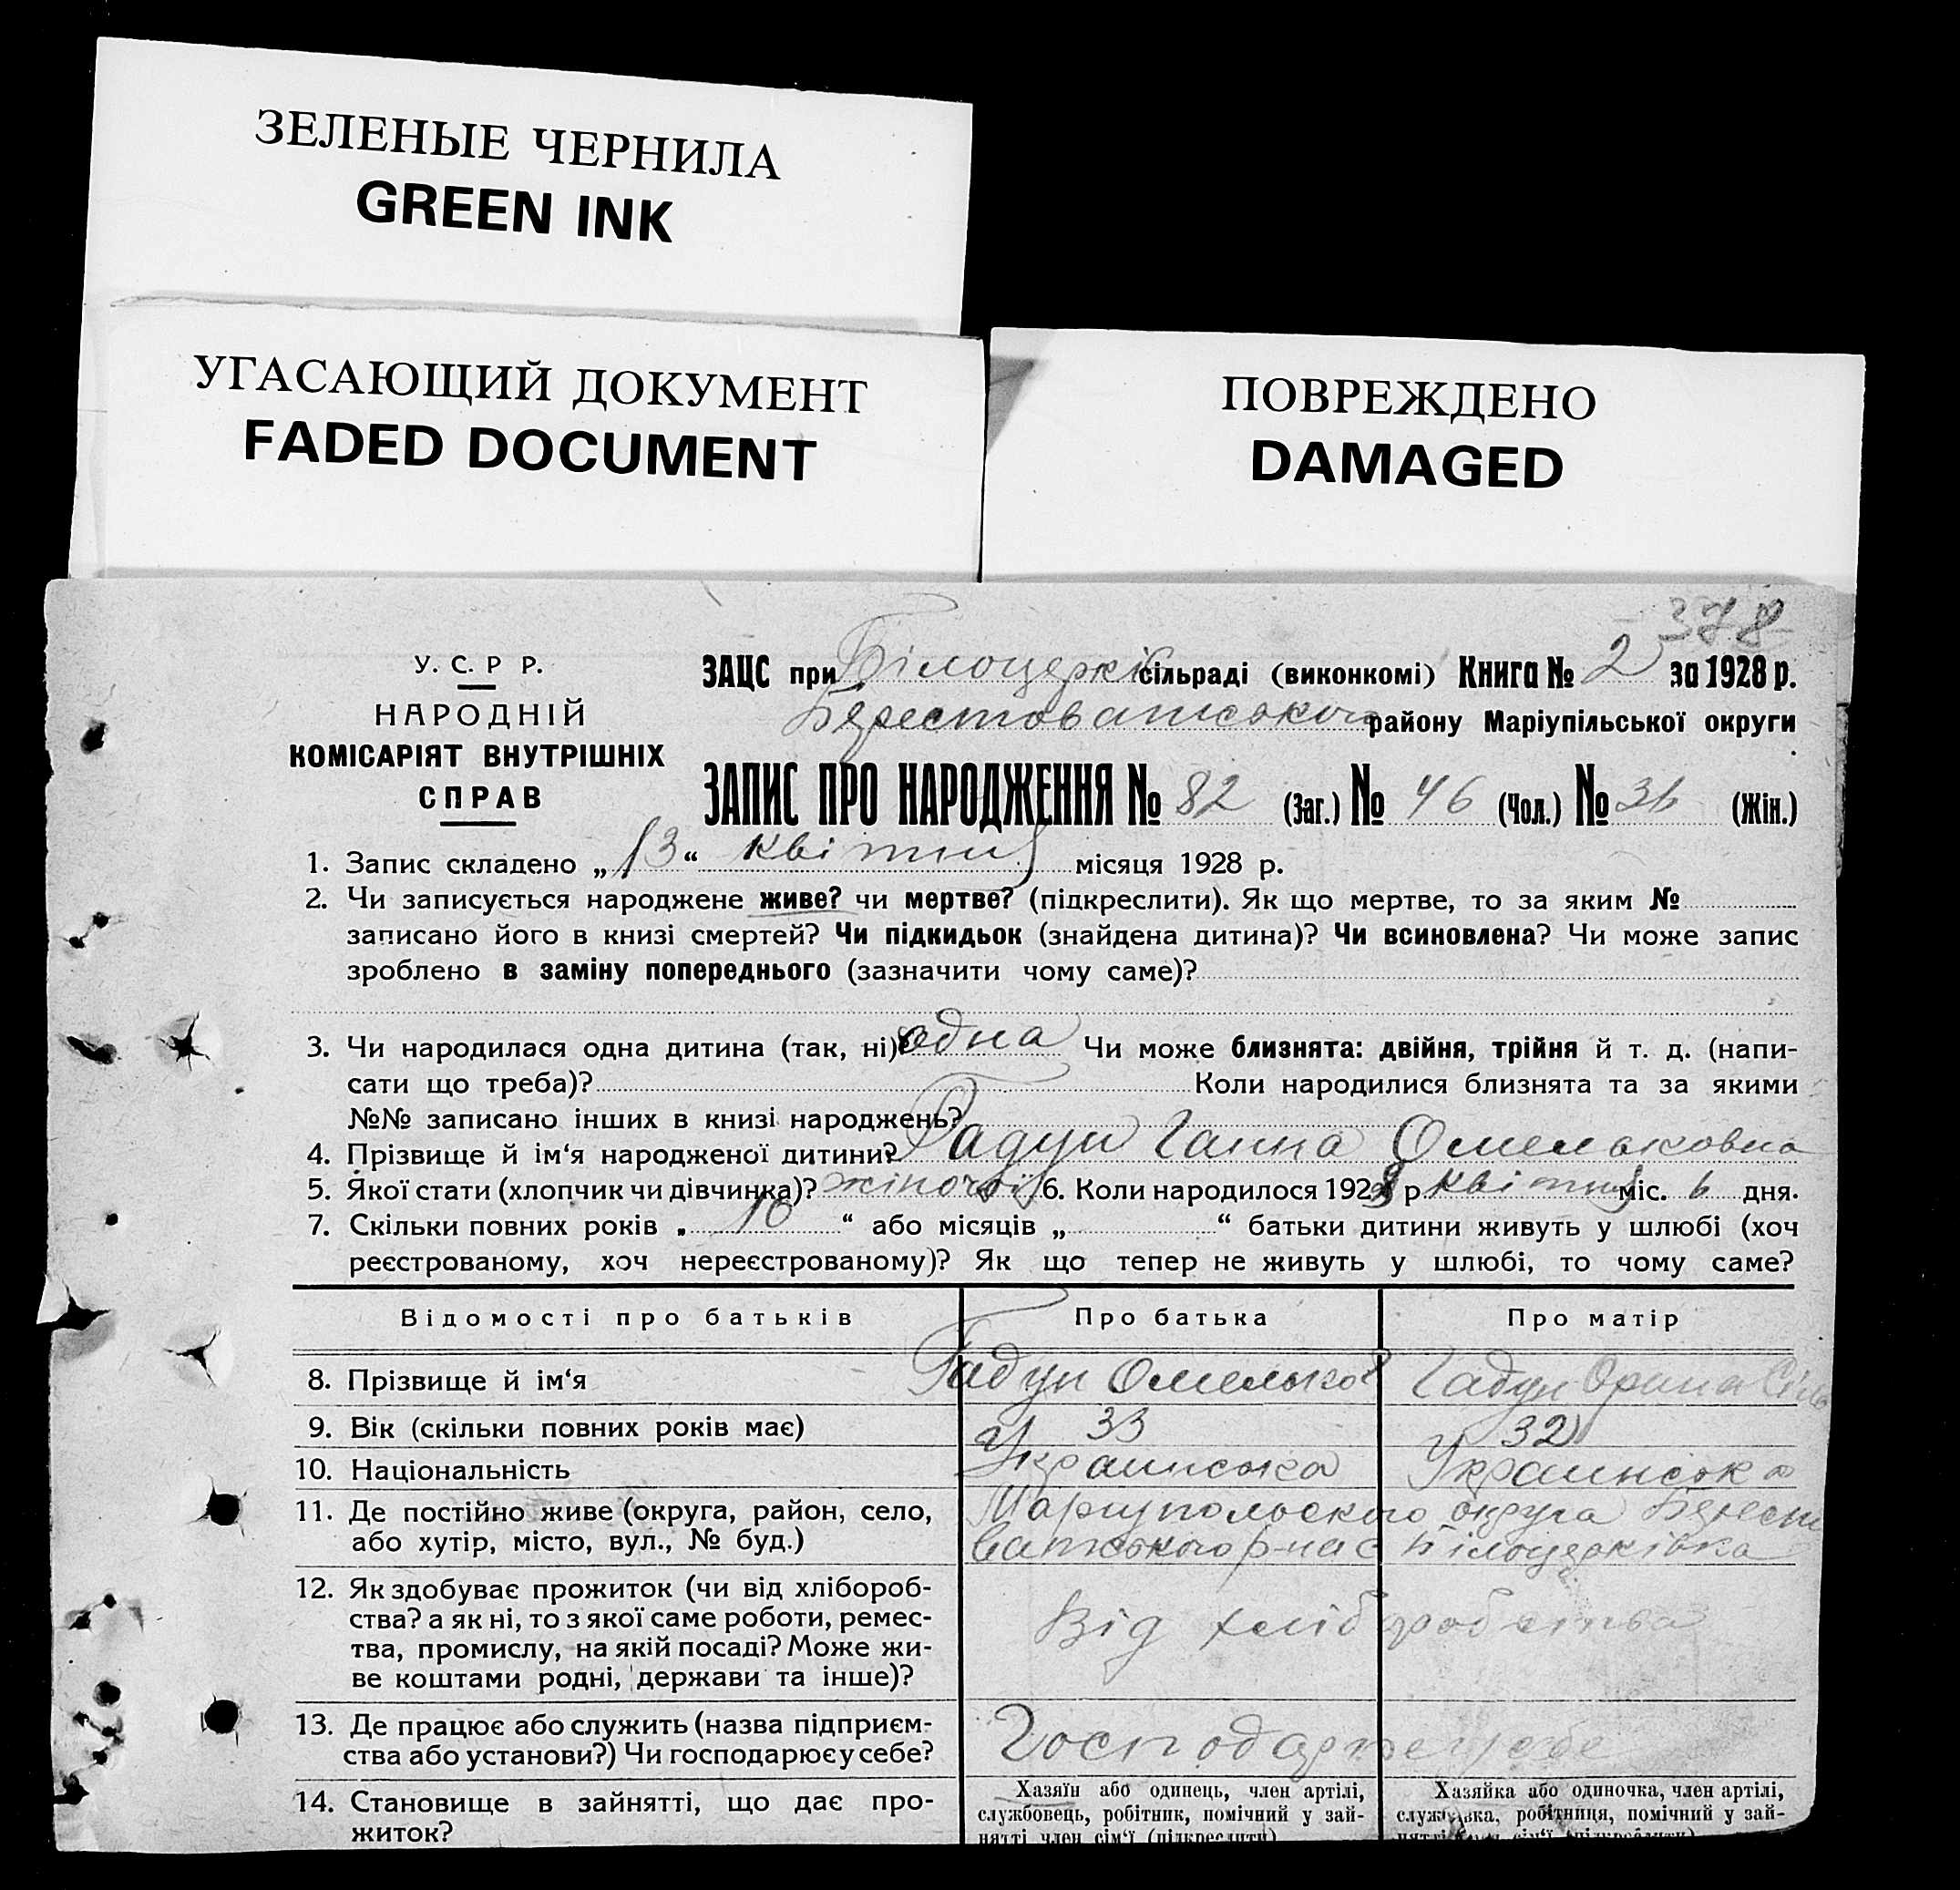 ЗЕЛЕНЫЕ ЧЕРНИЛА
GREEN INK
УГАСАЮЩИЙ ДОКУМЕНТ
FADED DOCUMENT
ПОВРЕЖДЕНО
DAMAGED
378
У. С. Р Р.
НАРОДНІЙ
КОМІСАРІЯТ ВНУТРІШНІХ
СПРАВ
ЗАЦС при Білоцеркі сільраді (виконкомі) Книга № 2 за 1928 р.
Берестоватського району Маріупільської округи
ЗАПИС ПРО НАРОДЖЕННЯ № 82 (Заг.) № 46 (Чол.) № 36 (Жін.)
1. Запис складено „13“ квітня місяця 1928 р.
2. Чи записується народжене живе? чи мертве? (підкреслити). Як що мертве, то за яким №
записано його в книзі смертей? Чи підкидьок (знайдена дитина)? Чи всиновлена? Чи може запис
зроблено в заміну попереднього (зазначити чому саме)?
3. Чи народилася одна дитина (так, ні)? одна Чи може близнята: двійня, трійня й т. д. (напи-
сати що треба)? Коли народилися близнята та за якими
№№ записано інших в книзі народжень?
4. Прізвище й ім‘я народженої дитини? Гадун Ганна Омельковна
5. Якої стати (хлопчик чи дівчинка)? жіночої 6. Коли народилося 1928 р квітня міс. 6 дня.
7. Скільки повних років „ 10 “ або місяців „ “ батьки дитини живуть у шлюбі (хоч
реєстрованому, хоч нереєстрованому)? Як що тепер не живуть у шлюбі, то чому саме?
Відомості про батьків Про батька Про матір
8. Прізвище й ім‘я Гадун Омелько Гадун Орина
9. Вік (скільки повних років має) 33 32
10. Національність Украинська Украинська
11. Де постійно живе (округа, район, село, Мариупольского округа Берест
або хутір, місто, вул., № буд.) ватського р-на с Білоцерківка
12. Як здобуває прожиток (чи від хлібороб-
ства? а як ні, то з якої саме роботи, ремес- Від хліборобства
тва, промислу, на якій посаді? Може жи-
ве коштами родні, держави та інше)?
13. Де працює або служить (назва підприєм-
ства або установи?) Чи господарює у себе? Господарює у себе
14. Становище в зайнятті, що дає про- Хазяїн або одинець, член артілі, Хазяйка або одиночка, член артілі,
житок? службовець, робітник, помічний у зай- службвка, робітниця, помічний у зай-
нятті член сім‘ї (підкреслити) нятті сім‘ї (підкреслити)